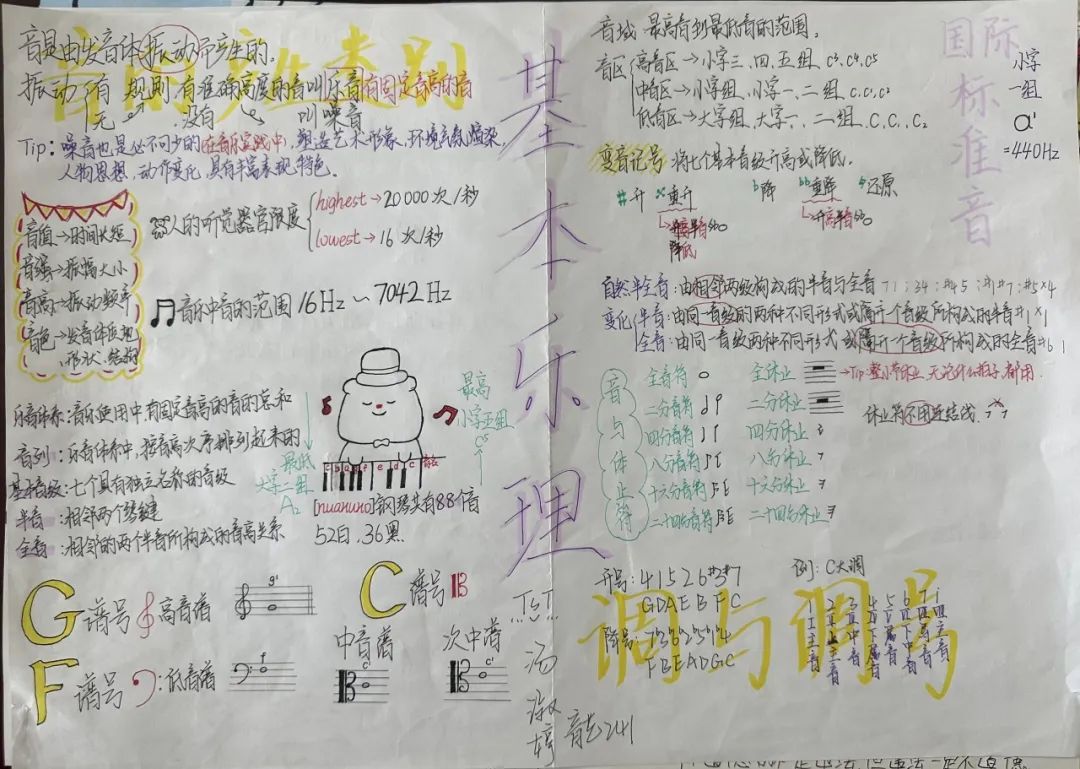 音的产生类别
音是由发音体振动而产生的。
振动 有 规则 有准确高度的音叫乐音 有固定音高的音
无 没有 叫噪音
Tip: 噪音也是必不可少的(在音乐实践中), 塑造艺术形象, 环境气氛渲染,
人物思想, 动作变化, 具有丰富表现特色。
音值→时间长短
音强→振幅大小
音高→振动频率
音色→发音体质地
、形状、结构
人的听觉器官限度
highest→20000次/秒
lowest→16次/秒
音乐中音的范围16Hz~7042Hz
乐音体系: 音乐使用中有固定音高的音的总和
音列: 乐音体系中, 按音高次序排列起来的
基本音级: 七个具有独立名称的音级
半音: 相邻两个琴键
全音: 相邻的两个半音所构成的音高关系
最低
大字二组
A₂
最高
小字五组
c5
c b a g f e d c
[nuanuno]钢琴共有88个音
52白, 36黑
G谱号 高音谱 g¹
F谱号: 低音谱 f
C谱号
中音谱 c¹
次中谱 c¹
基本乐理
汤淑
音老241
音域 最高音到最低音的范围。
音区
高音区→小字三、四、五组 c³, c4, c5
中音区→小字组, 小字一、二组 c, c¹, c²
低音区→大字组, 大字一、二组 C, C₁, C₂
国际标准音
小字
一组
a¹
=440Hz
变音记号: 将七个基本音级升高或降低.
#升 ×重升 b降 bb重降 还原
降低
自然半全音: 由相邻两级构成的半音与全音
变化
半音: 由同一音级的两种不同形式或隔开一个音级所构成的半音
全音: 由同一音级两种不同形式或隔开一个音级所构成的全音
音与休止符
全音符 全休止 →Tip: 整小节休止, 无论什么拍子, 都用.
二分音符 二分休止 休止符不用连结线.
四分音符 四分休止
八分音符 八分休止
十六分音符 十六分休止
三十二分音符 三十二分休止
调与调号
升号: 4 1 5 2 6 #3 #7
G D A E B F C
降号:
F B E A D G C
例: C大调
1 2 3 4 5 6 7 i
I II III IV V VI VII I
主音 上主音 中音 下属音 属音 下中音 导音 主音